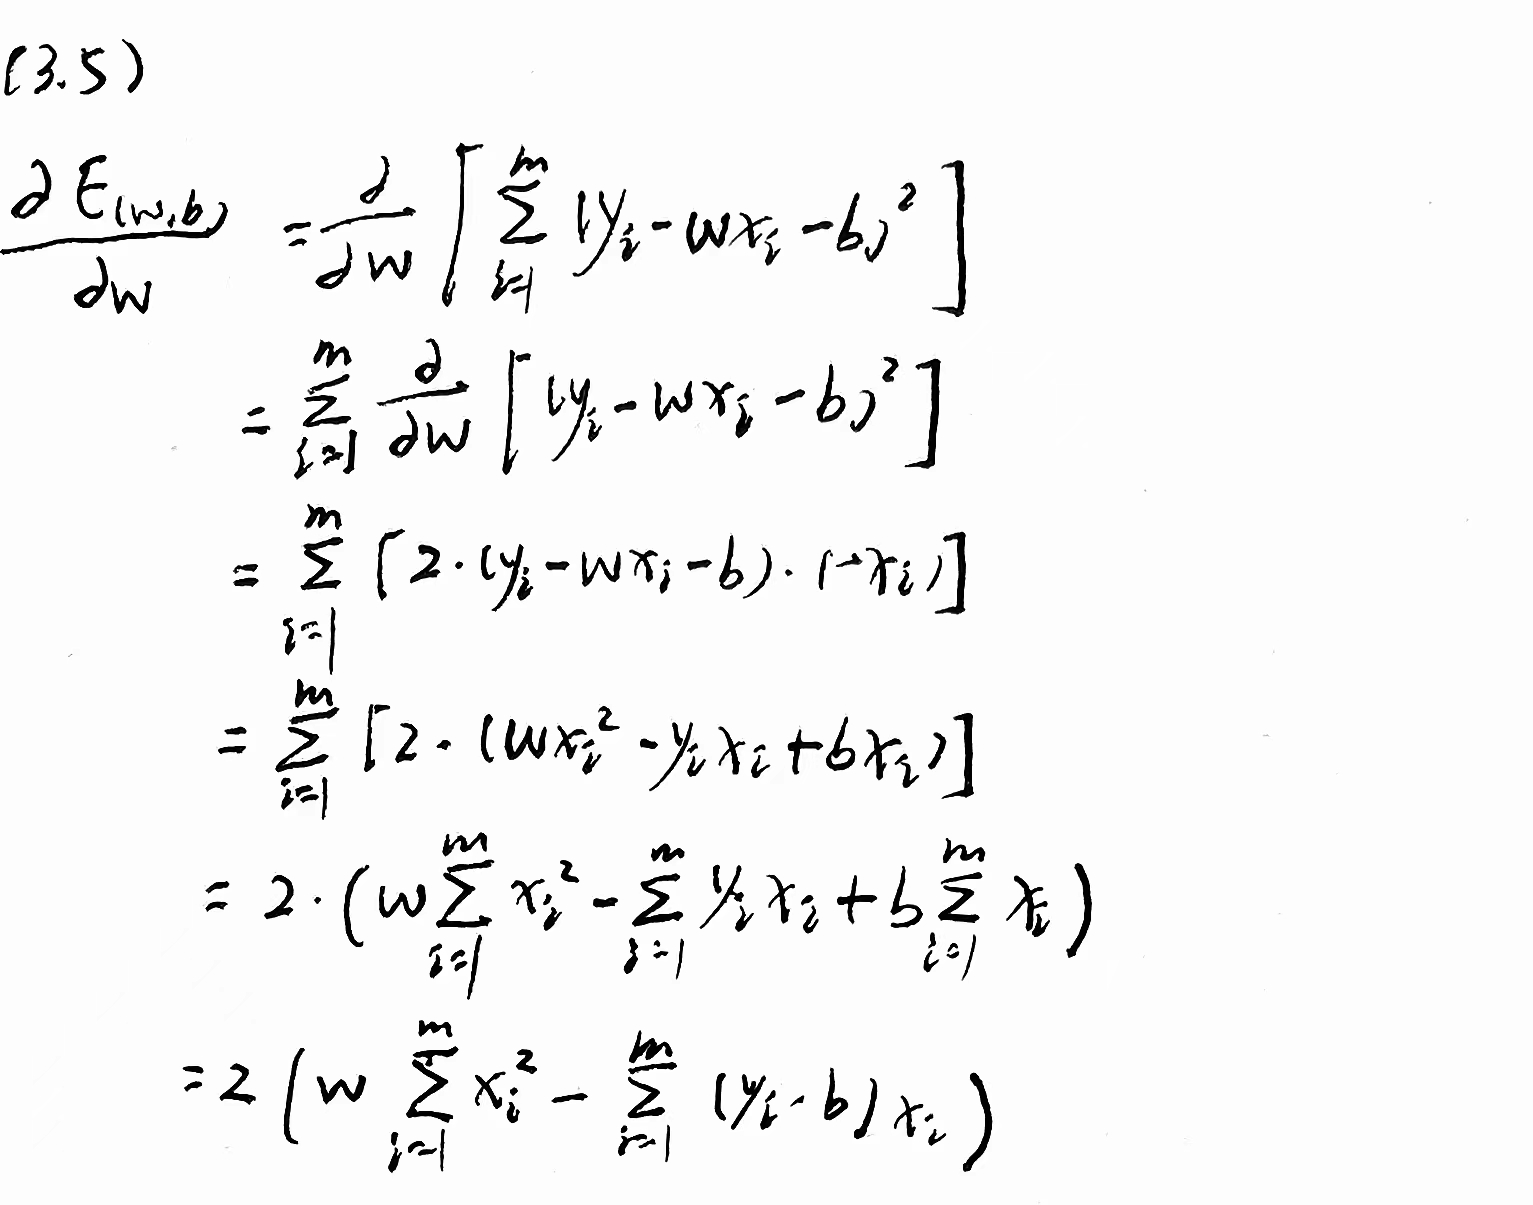 (3.5)
\frac{\partial E_{(w,b)}}{\partial w} = \frac{\partial}{\partial w} \left[ \sum_{i=1}^{m} (y_i - wx_i - b)^2 \right]
= \sum_{i=1}^{m} \frac{\partial}{\partial w} \left[ (y_i - wx_i - b)^2 \right]
= \sum_{i=1}^{m} \left[ 2 \cdot (y_i - wx_i - b) \cdot (-x_i) \right]
= \sum_{i=1}^{m} \left[ 2 \cdot (wx_i^2 - y_i x_i + bx_i) \right]
= 2 \cdot \left( w \sum_{i=1}^{m} x_i^2 - \sum_{i=1}^{m} y_i x_i + b \sum_{i=1}^{m} x_i \right)
= 2 \left( w \sum_{i=1}^{m} x_i^2 - \sum_{i=1}^{m} (y_i - b) x_i \right)